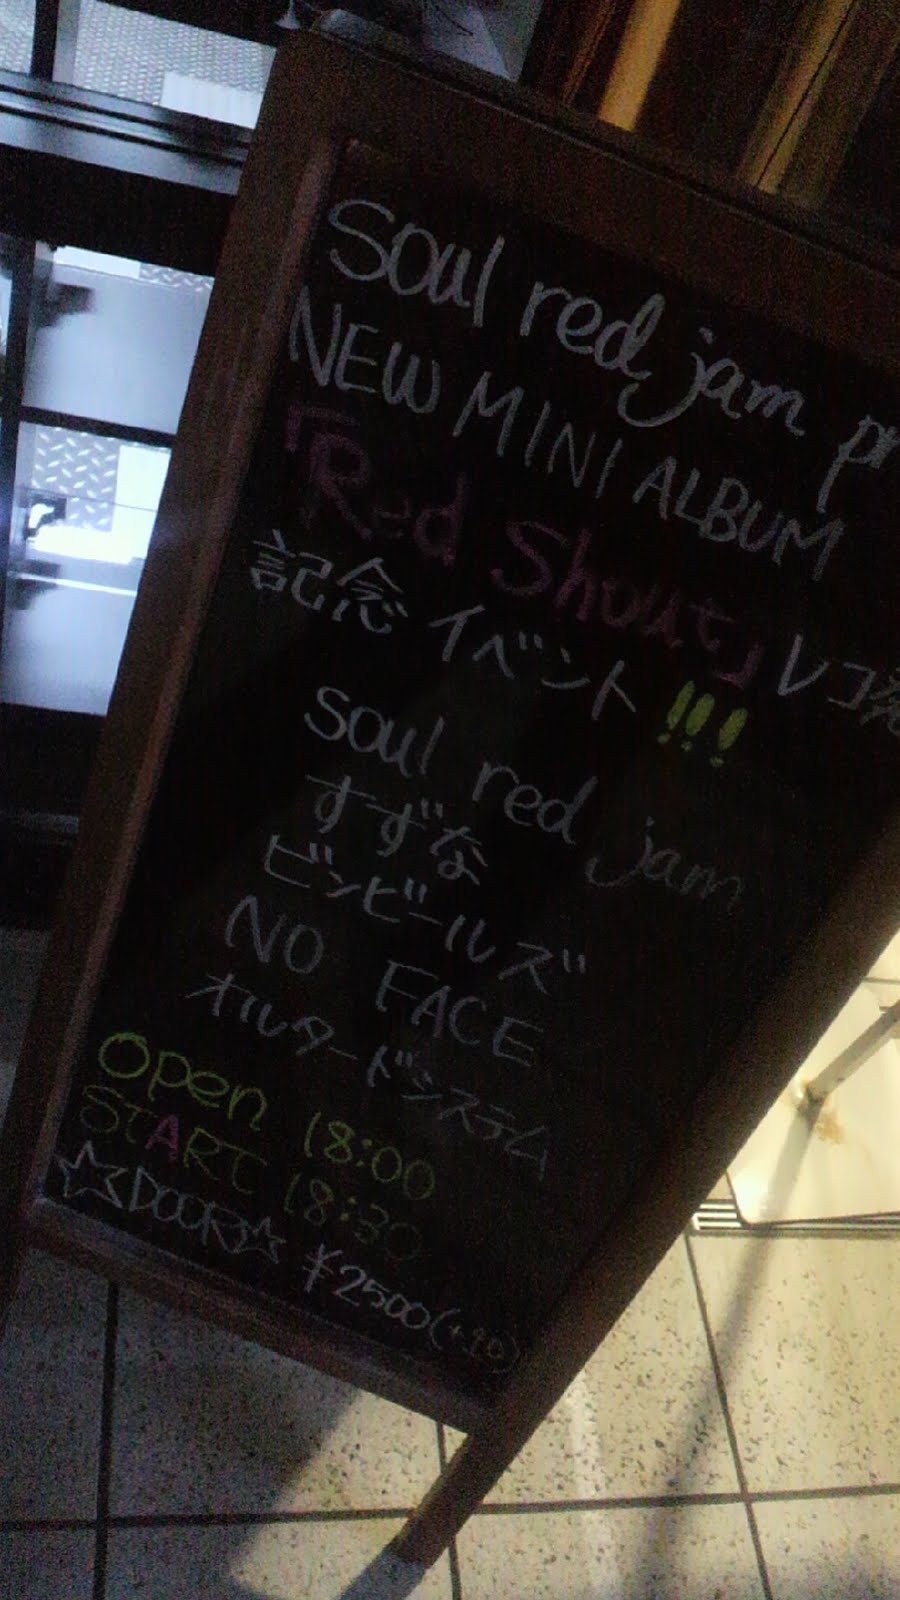 Soul red jam pr
NEW MINI ALBUM
「Red Shout」レコ発
記念イベント!!!
soul red jam
すずな
ビンビールズ
NO FACE
オルタードシステム
open 18:00
START 18:30
☆DOOR☆ ¥2500(+1D)